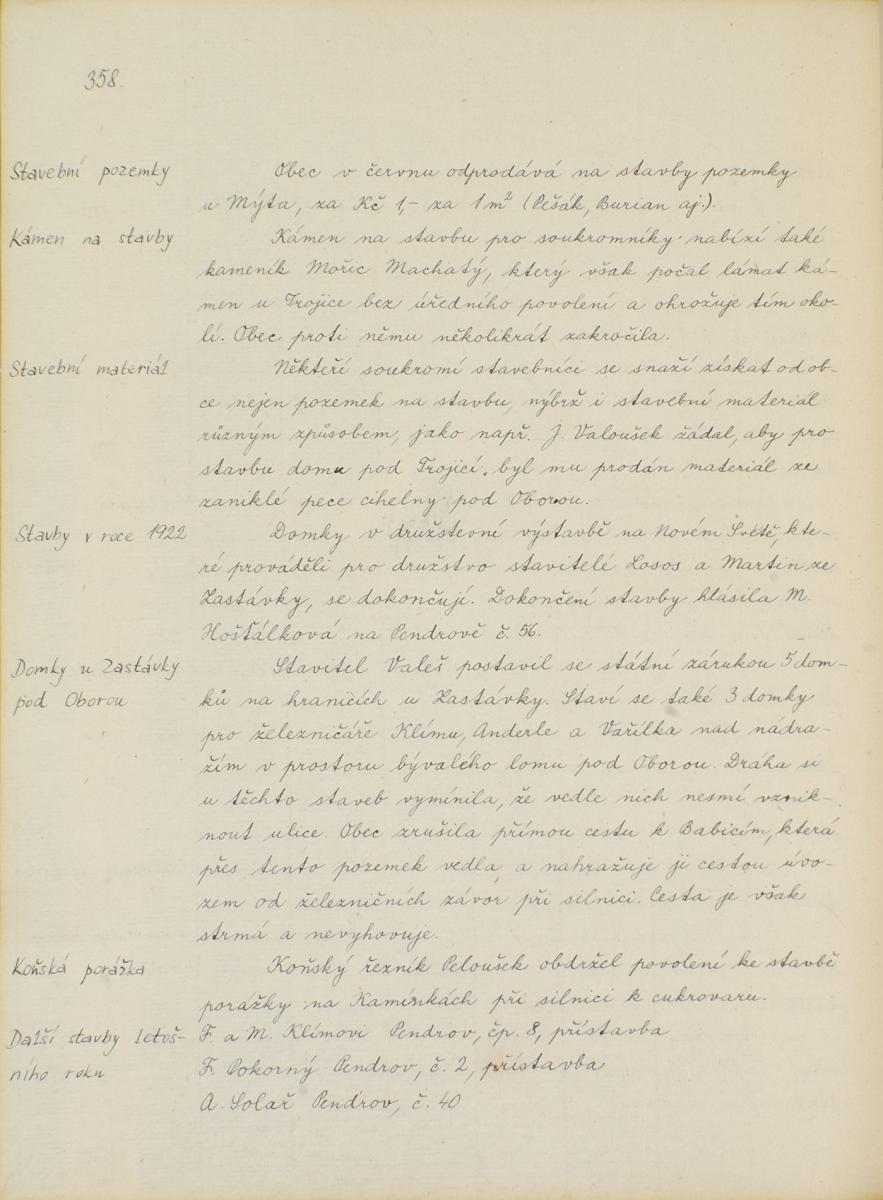 358.
Stavební pozemky
Obec v červnu odprodává na stavby pozemky
u Mýta, za Kč 1,- za 1 m² (Pešák, Burian aj.).
Kámen na stavby
Kámen na stavbu pro soukromníky nabízí také
kameník Mořic Machatý, který však počal lámat ká-
men u Trojice bez úředního povolení a ohrožuje tím oko-
lí. Obec proti němu několikrát zakročila.
Stavební materiál
Někteří soukromí stavebníci se snaží získat od ob-
ce nejen pozemek na stavbu, nýbrž i stavební materiál
různým způsobem, jako např. J. Valoušek žádal, aby pro
stavbu domu pod Trojicí, byl mu prodán materiál ze
zaniklé pece cihelny pod Oborou.
Stavby v roce 1922
Domky v družstevní výstavbě na Novém Světě, kte-
ré prováděli pro družstvo stavitelé Losos a Martin ze
Zastávky, se dokončují. Dokončení stavby hlásila M.
Hošťálková na Pendrově č. 56.
Domky u Zastávky
pod Oborou
Stavitel Valeš postavil se státní zárukou 5 dom-
ků na hranicích u Zastávky. Staví se také 3 domky
pro železničáře Klímu, Anderle a Vařilka nad nádra-
žím v prostoru bývalého lomu pod Oborou. Dráha si
u těchto staveb vymínila, že vedle nich nesmí vznik-
nout ulice. Obec zrušila přímou cestu k Babicím, která
přes tento pozemek vedla, a nahražuje ji cestou úvo-
zem od železničních závor při silnici. Cesta je však
strmá a nevyhovuje.
Koňská porážka
Koňský řezník Peloušek obdržel povolení ke stavbě
porážky na Kamínkách při silnici k cukrovaru.
Další stavby letoš-
ního roku
F. a M. Klímovi Pendrov, čp. 8, přístavba
F. Pokorný Pendrov, č. 2, přístavba
A. Solař Pendrov, č. 40